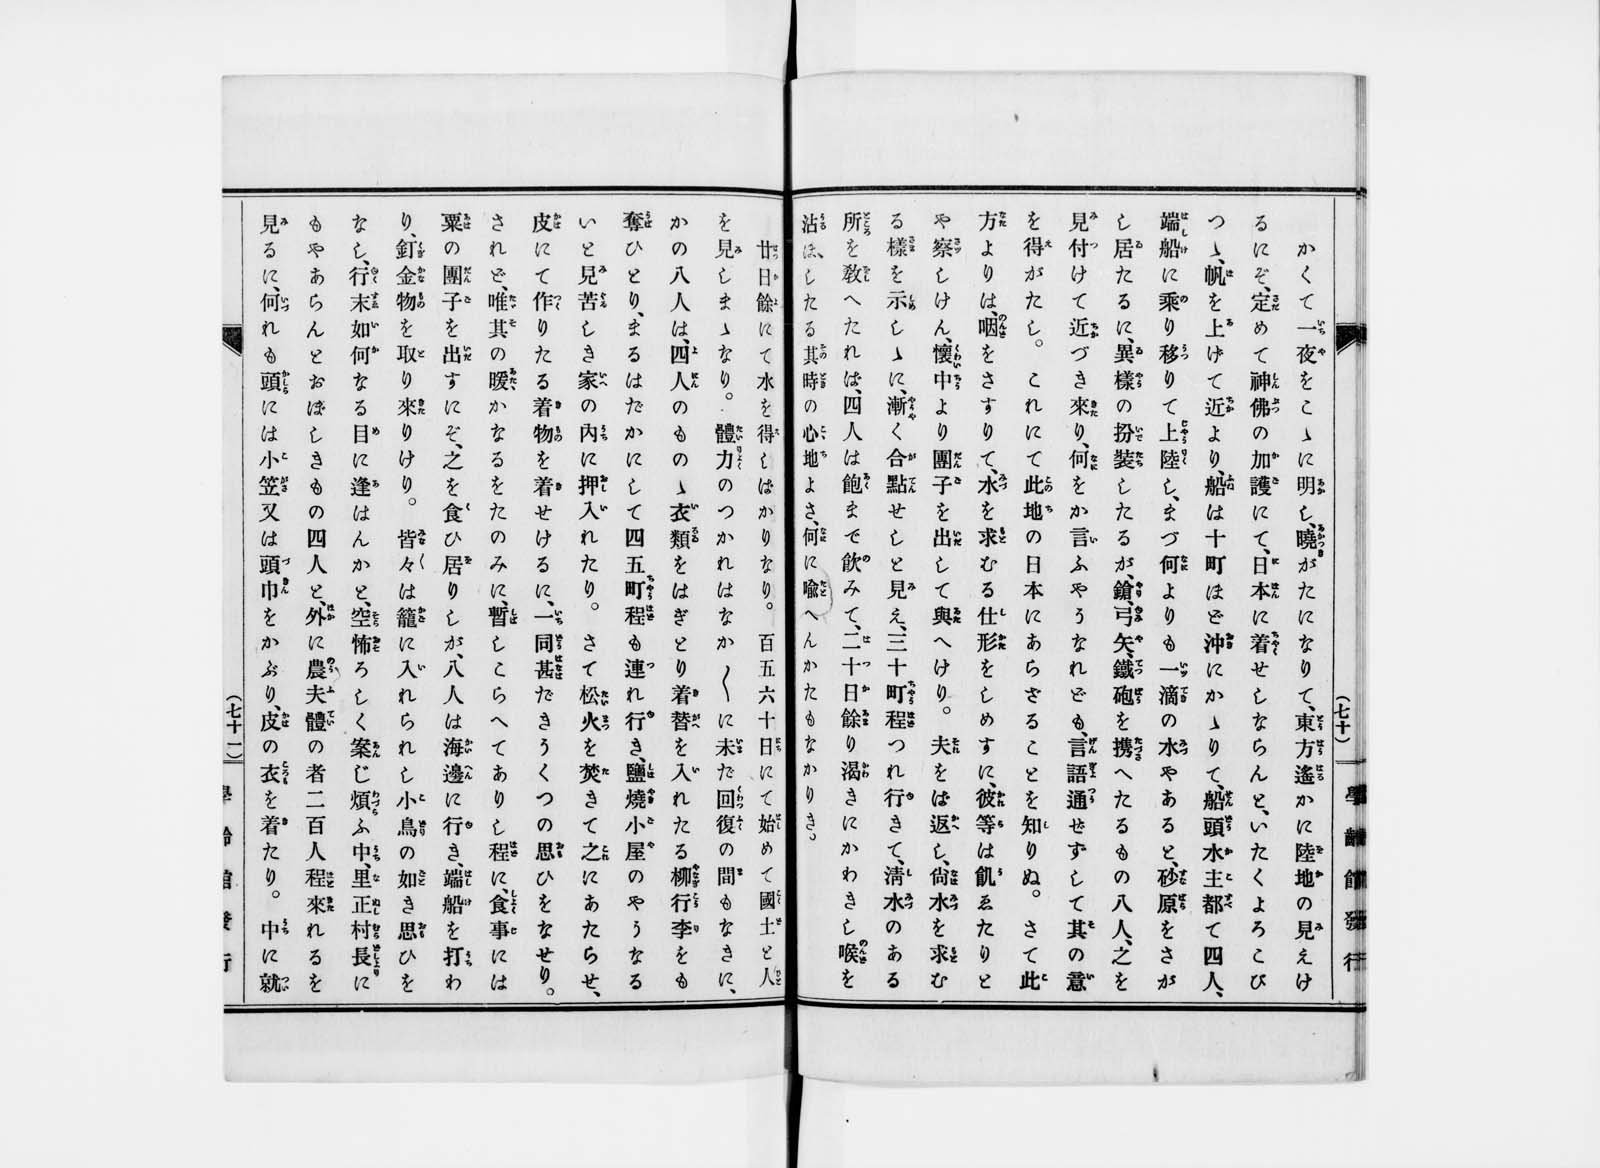 かくて一夜をこゝに明し、曉がたになりて、東方遙かに陸地の見えけ
るにぞ、定めて神佛の加護にて、日本に着せしならんと、いたくよろこび
つゝ、帆を上げて近より、船は十町ほど沖にかゝりて、船頭水主都て四人、
端船に乘り移りて上陸し、まづ何よりも一滴の水やあると、砂原をさが
し居たるに、異樣の扮裝したるが、鎗、弓矢、鐵砲を携へたるもの八人、之を
見付けて近づき來り、何をか言ふやうなれども、言語通ぜずして其の意
を得がたし。これにて此地の日本にあらざることを知りぬ。さて此
方よりは、咽をさすりて、水を求むる仕形をしめすに、彼等は飢ゑたりと
や察しけん、懷中より團子を出して與へけり。夫をは返し、尙水を求む
る樣を示しゝに、漸く合點せしと見え、三十町程つれ行きて、淸水のある
所を敎へたれば、四人は飽まで飮みて、二十日餘り渴きにかわきし喉を
沾ほしたる其時の心地よさ、何に喩へんかたもなかりき。
(七十)
學齡館發行
廿日餘にて水を得しばかりなり。百五六十日にて始めて國土と人
を見しまゝなり。體力のつかれはなか〳〵に未だ回復の間もなきに、
かの八人は、四人のものゝ衣類をはぎとり着替を入れたる柳行李をも
奪ひとり、まるはだかにして四五町程も連れ行き、鹽燒小屋のやうなる
いと見苦しき家の內に押入れたり。さて松火を焚きて之にあたらせ、
皮にて作りたる着物を着せけるに、一同甚だきうくつの思ひをなせり。
されど、唯其の暖かなるをたのみに、暫しこらへてありし程に、食事には
粟の團子を出すにぞ、之を食ひ居りしが、八人は海邊に行き、端船を打わ
り、釘金物を取り來りけり。皆々は籠に入れられし小鳥の如き思ひを
なし、行末如何なる目に逢はんかと、空怖ろしく案じ煩ふ中、里正村長に
もやあらんとおぼしきもの四人と、外に農夫體の者二百人程來れるを
見るに、何れも頭には小笠又は頭巾をかぶり、皮の衣を着たり。中に就
(七十一)
學齡館發行